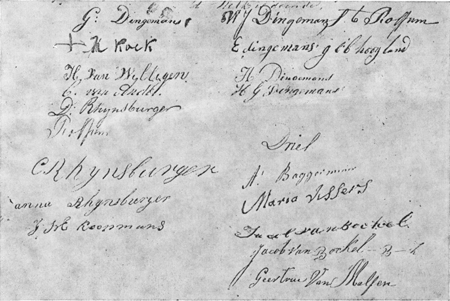 G. Dingemans
H Kock
H. Van Wyllegen
C. van Andel
D. Rhynsburger
Rossum
C Rhynsburger
anna Rhynsburger
J. H. Koopmans
W J Dingemans J t Rossum
E. dingemans geb hoogland
H Dingemans
H G Dingemans
Driel
A. Baggerman
Maria Vissers
van Bockel
Jacob Van Bockel
Geertrui Van Malsen